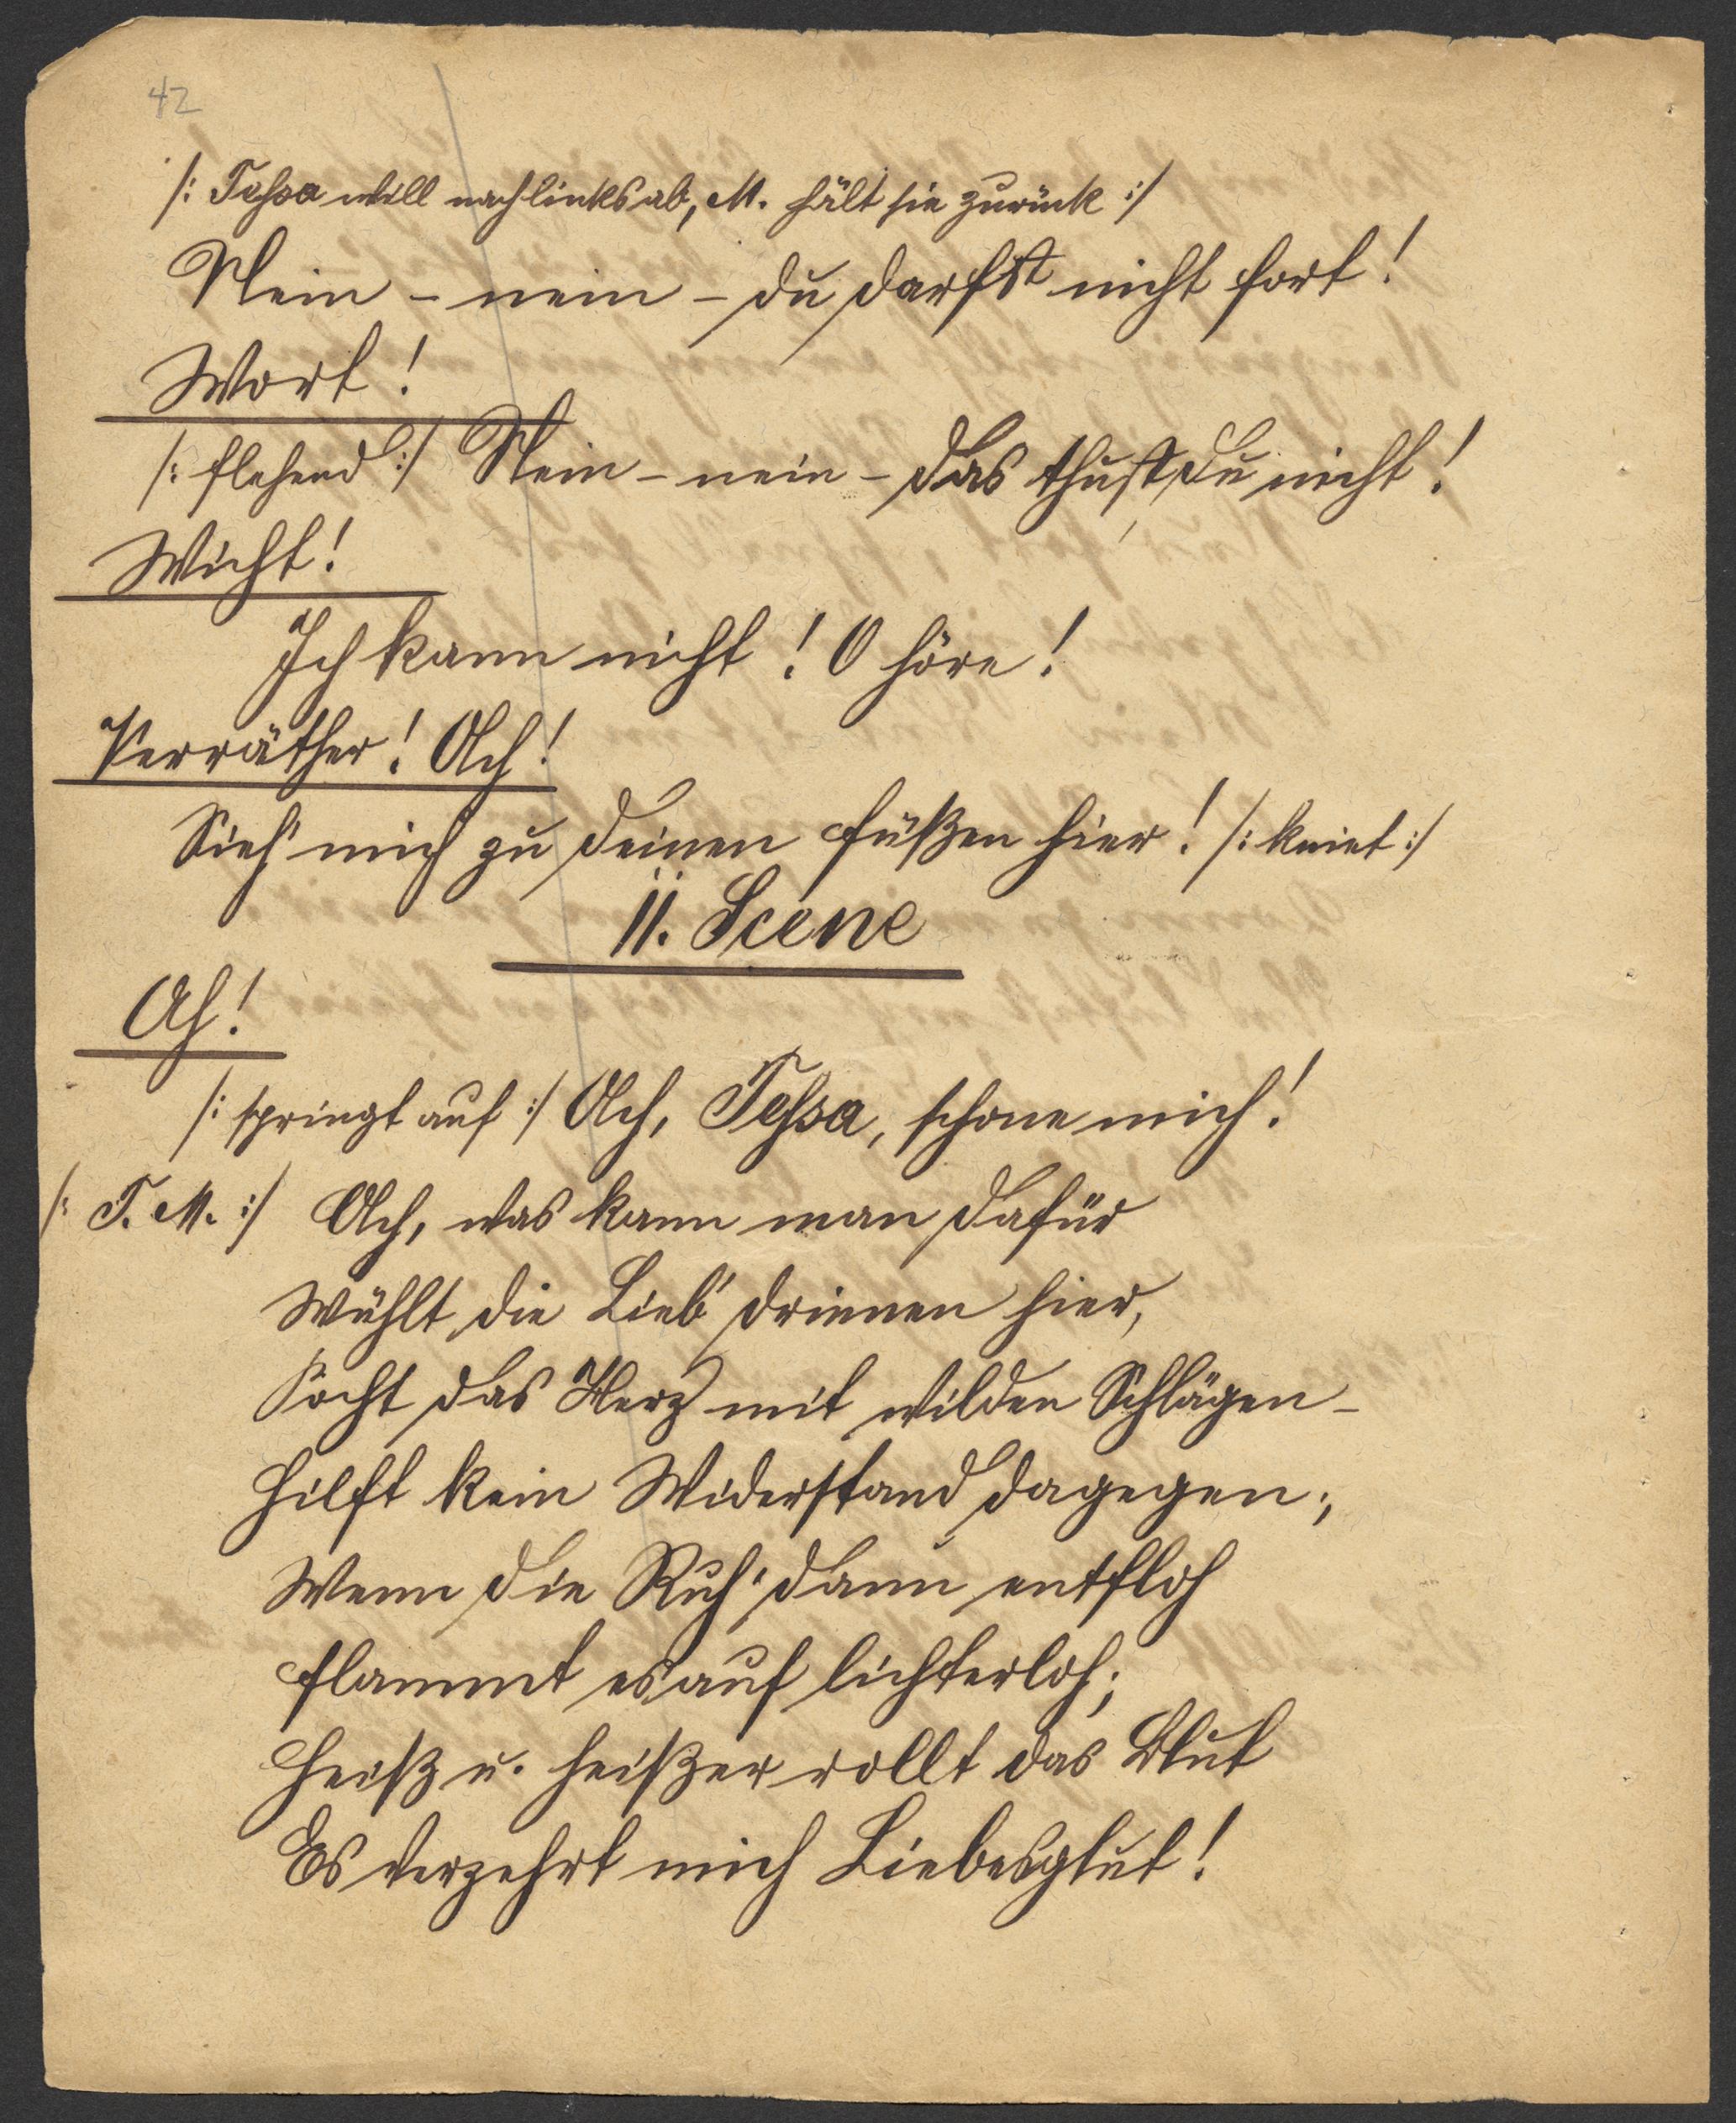 42
/: Tessa will nach links ab, M. hält sie zurück :/
Nein - nein - du darfst nicht fort!
Wort!
/: flehend :/ Nein - nein - das thust du nicht!
Wicht!
Ich kann nicht! O höre!
Verräther! Ach!
Sieh' mich zu deinen Füßen hier! /: kniet :/
11. Scene
Ah!
/: springt auf :/ Ach, Tessa, schone mich!
/: T. M. :/ Ach, was kann man dafür
Wühlt die Lieb' drinnen hier,
Pocht das Herz mit wilden Schlägen -
Hilft kein Widerstand dagegen;
Wenn die Ruh' dann entfloh
Flammt es auf lichterloh;
Heiß u. heißer rollt das Blut
Es verzehrt mich Liebesglut!